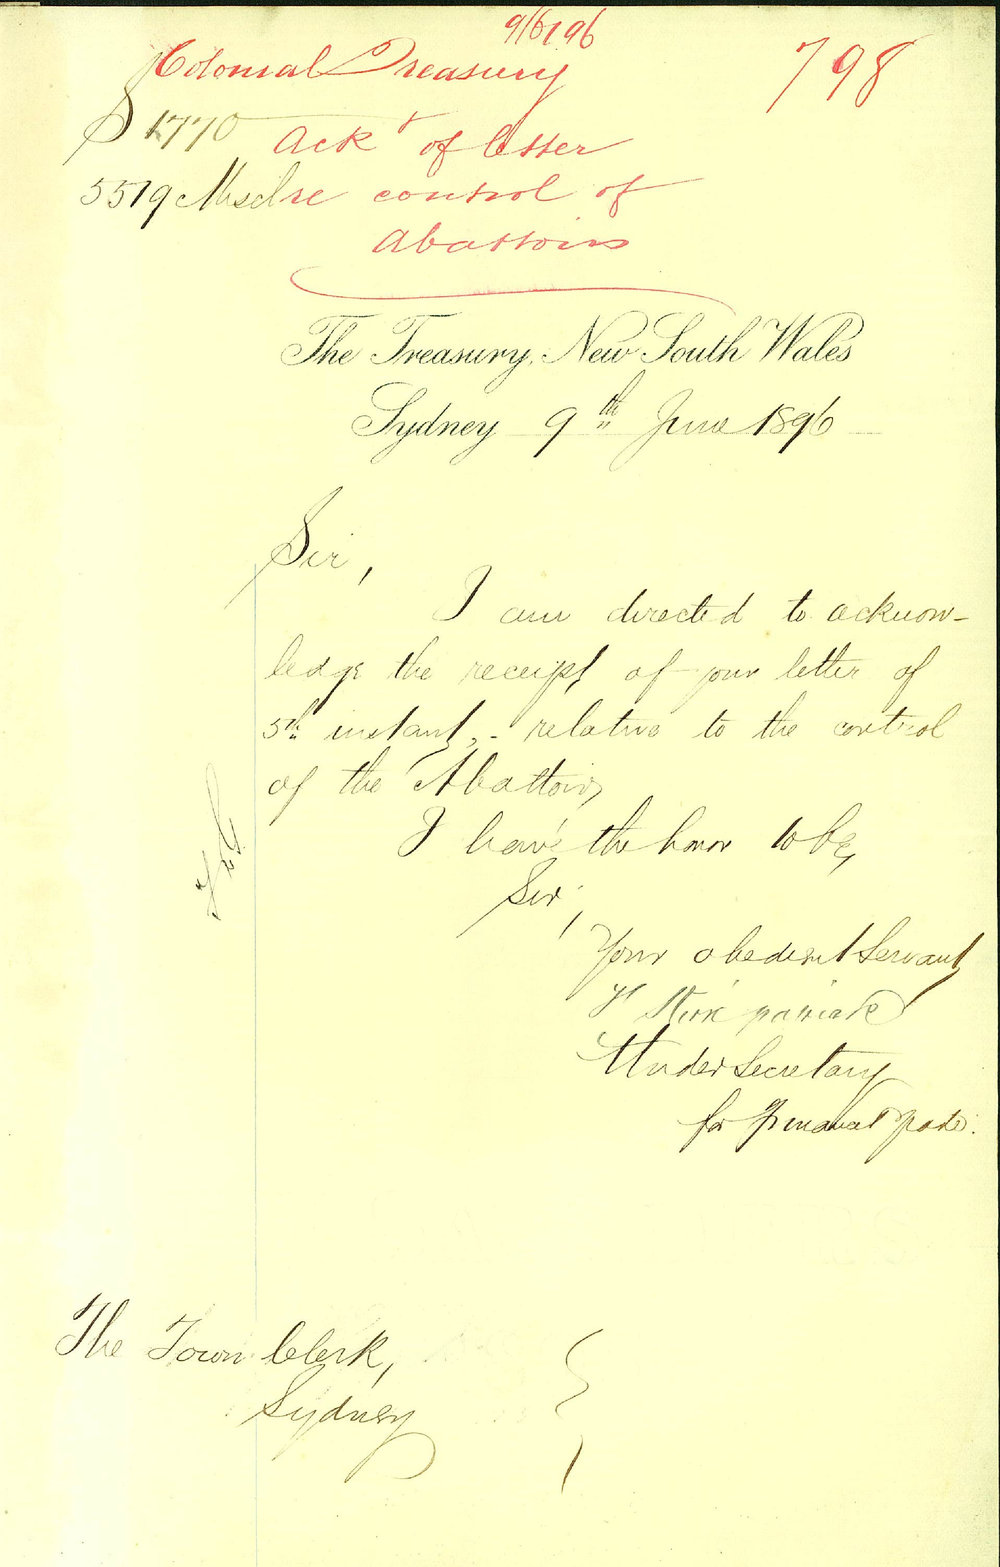 9/6/96
Colonial Treasury
798
S 1770
Ackt of letter
5519 Miscl re control of
Abattoirs
The Treasury, New South Wales
Sydney 9th June 1896
Sir,
I am directed to acknow-
ledge the receipt of your letter of
5th instant, - relative to the control
of the Abattoirs
I have the honor to be,
Sir,
Your obedient Servant
F Kirkpatrick
Under Secretary
for Finance & Trade.
The Town Clerk,
Sydney